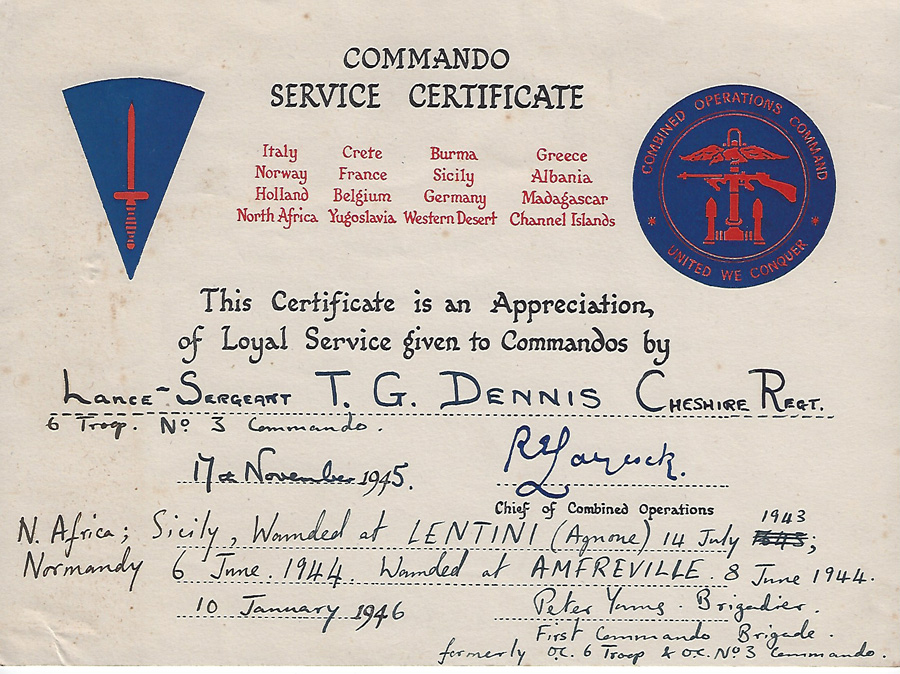 COMMANDO
SERVICE CERTIFICATE
Italy Crete Burma Greece
Norway France Sicily Albania
Holland Belgium Germany Madagascar
North Africa Yugoslavia Western Desert Channel Islands
COMBINED OPERATIONS COMMAND
* UNITED WE CONQUER *
This Certificate is an Appreciation,
of Loyal Service given to Commandos by
Lance-Sergeant T. G. Dennis Cheshire Regt.
6 Troop. No 3 Commando.
17th November 1945.
R E Laycock.
Chief of Combined Operations
1943
N. Africa; Sicily, Wounded at LENTINI (Agnone) 14 July 1945;
Normandy 6 June. 1944. Wounded at AMFREVILLE. 8 June 1944.
10 January 1946
Peter Young. Brigadier.
First Commando Brigade.
formerly O.C. 6 Troop & O.C. No 3 Commando.